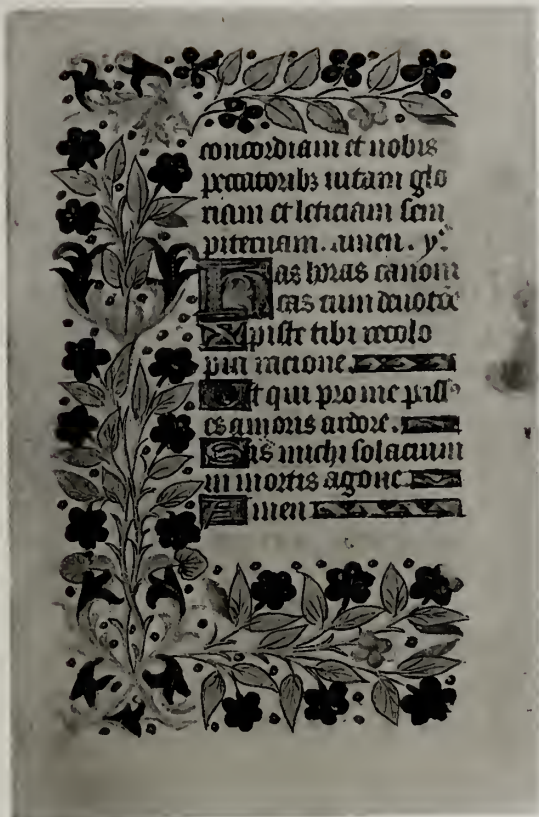 concordiam et nobis
peccatorib3 uitam glo
riam et leticiam sem
piternam. amen. y.
Has horas canoni
cas cum deuotōe
Xpiste tibi recolo
pia racione.
Et qui pro me pass⁹
es amoris ardore.
Sis michi solacium
in mortis agone
Amen